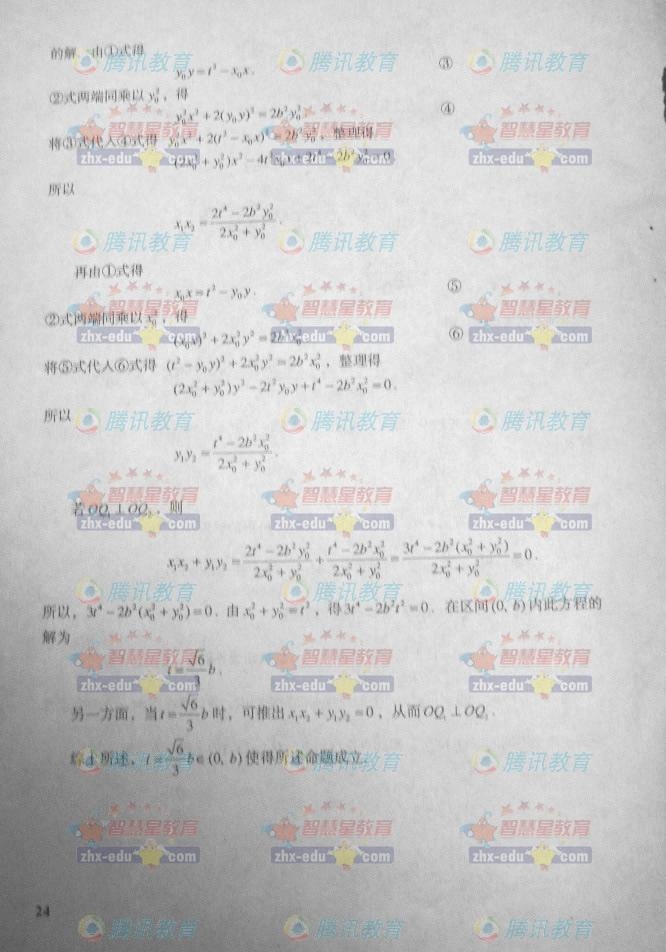 的解．由①式得
y₀y = t² − x₀x． ③
②式两端同乘以 y₀²，得
y₀²x² + 2(y₀y)² = 2b²y₀². ④
将③式代入④式得 y₀²x² + 2(t² − x₀x)² = 2b²y₀²，整理得
(2x₀² + y₀²)x² − 4t²x₀x + 2t⁴ − 2b²y₀² = 0.
所以
x₁x₂ = (2t⁴ − 2b²y₀²)/(2x₀² + y₀²).
再由①式得
x₀x = t² − y₀y. ⑤
②式两端同乘以 x₀²，得
(x₀x)² + 2x₀²y² = 2b²x₀². ⑥
将⑤式代入⑥式得 (t² − y₀y)² + 2x₀²y² = 2b²x₀²，整理得
(2x₀² + y₀²)y² − 2t²y₀y + t⁴ − 2b²x₀² = 0.
所以
y₁y₂ = (t⁴ − 2b²x₀²)/(2x₀² + y₀²).
若OQ₁⊥OQ₂，则
x₁x₂ + y₁y₂ = (2t⁴ − 2b²y₀²)/(2x₀² + y₀²) + (t⁴ − 2b²x₀²)/(2x₀² + y₀²) = (3t⁴ − 2b²(x₀² + y₀²))/(2x₀² + y₀²) = 0.
所以，3t⁴ − 2b²(x₀² + y₀²) = 0．由 x₀² + y₀² = t²，得 3t⁴ − 2b²t² = 0．在区间(0, b)内此方程的
解为
t = (√6/3)b.
另一方面，当 t = (√6/3)b 时，可推出 x₁x₂ + y₁y₂ = 0，从而OQ₁⊥OQ₂.
综上所述，t = (√6/3)b ∈ (0, b) 使得所述命题成立．
24
腾讯教育
智慧星教育
zhx-edu com